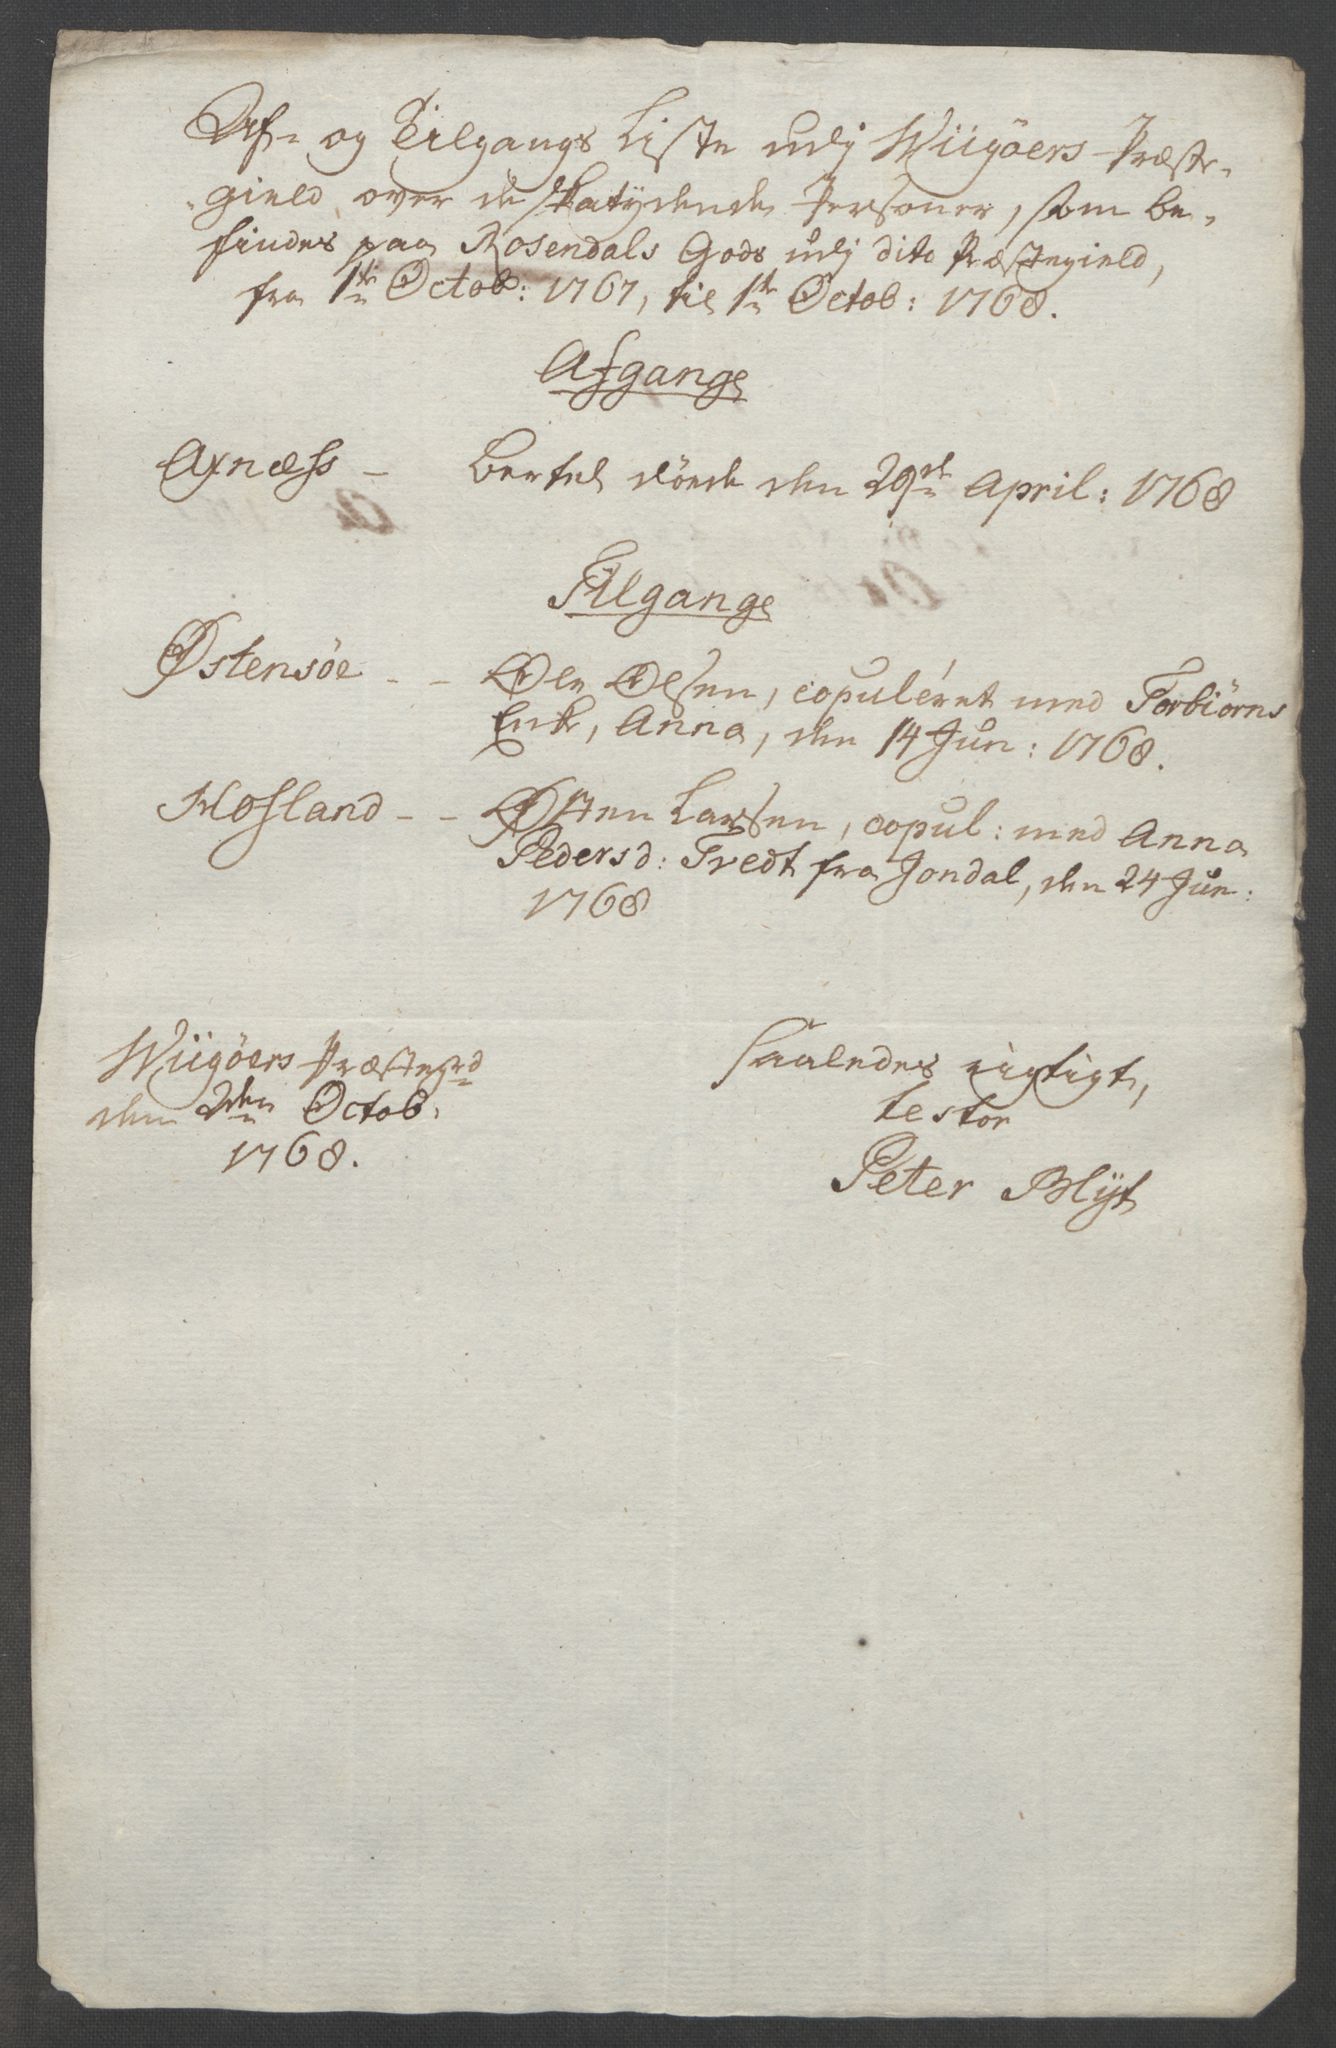 Af- og Tilgangs Liste udj Wiigöers Præste-
-gield over de skatydende Personer, som be-
findes paa Rosendals Gods udj dito Præstegield,
fra 1ste Octob: 1767, til 1ste Octob: 1768.
Afgang
Axnæss - Bertel döede den 29de April: 1768
Tilgang
Østensöe - - Ole Olsen, copuleret med Torbiörns
Enke, Anna, den 14 Jun: 1768.
Mosland - - Østen Larsen, copul: med Anna
Pedersd: Tvedt fra Jondal, den 24 Jun:
1768
Wiigöers Præstegrd
den 2den Octob:
1768.
Saaledes rigtigt,
testor
Peter Blÿt